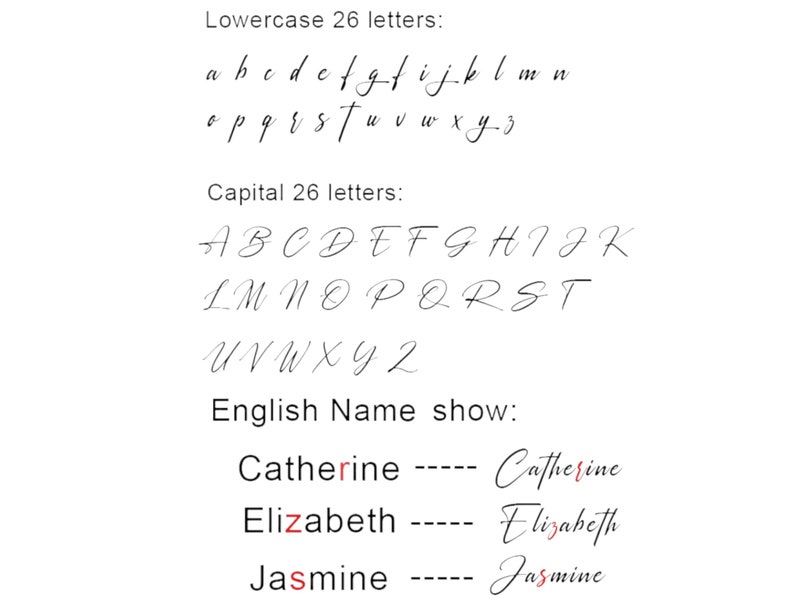 Lowercase 26 letters:
a b c d e f g f i j k l m n
o p q r s t u v w x y z
Capital 26 letters:
A B C D E F G H I J K
L M N O P Q R S T
U V W X Y Z
English Name show:
Catherine ----- Catherine
Elizabeth ----- Elizabeth
Jasmine ----- Jasmine